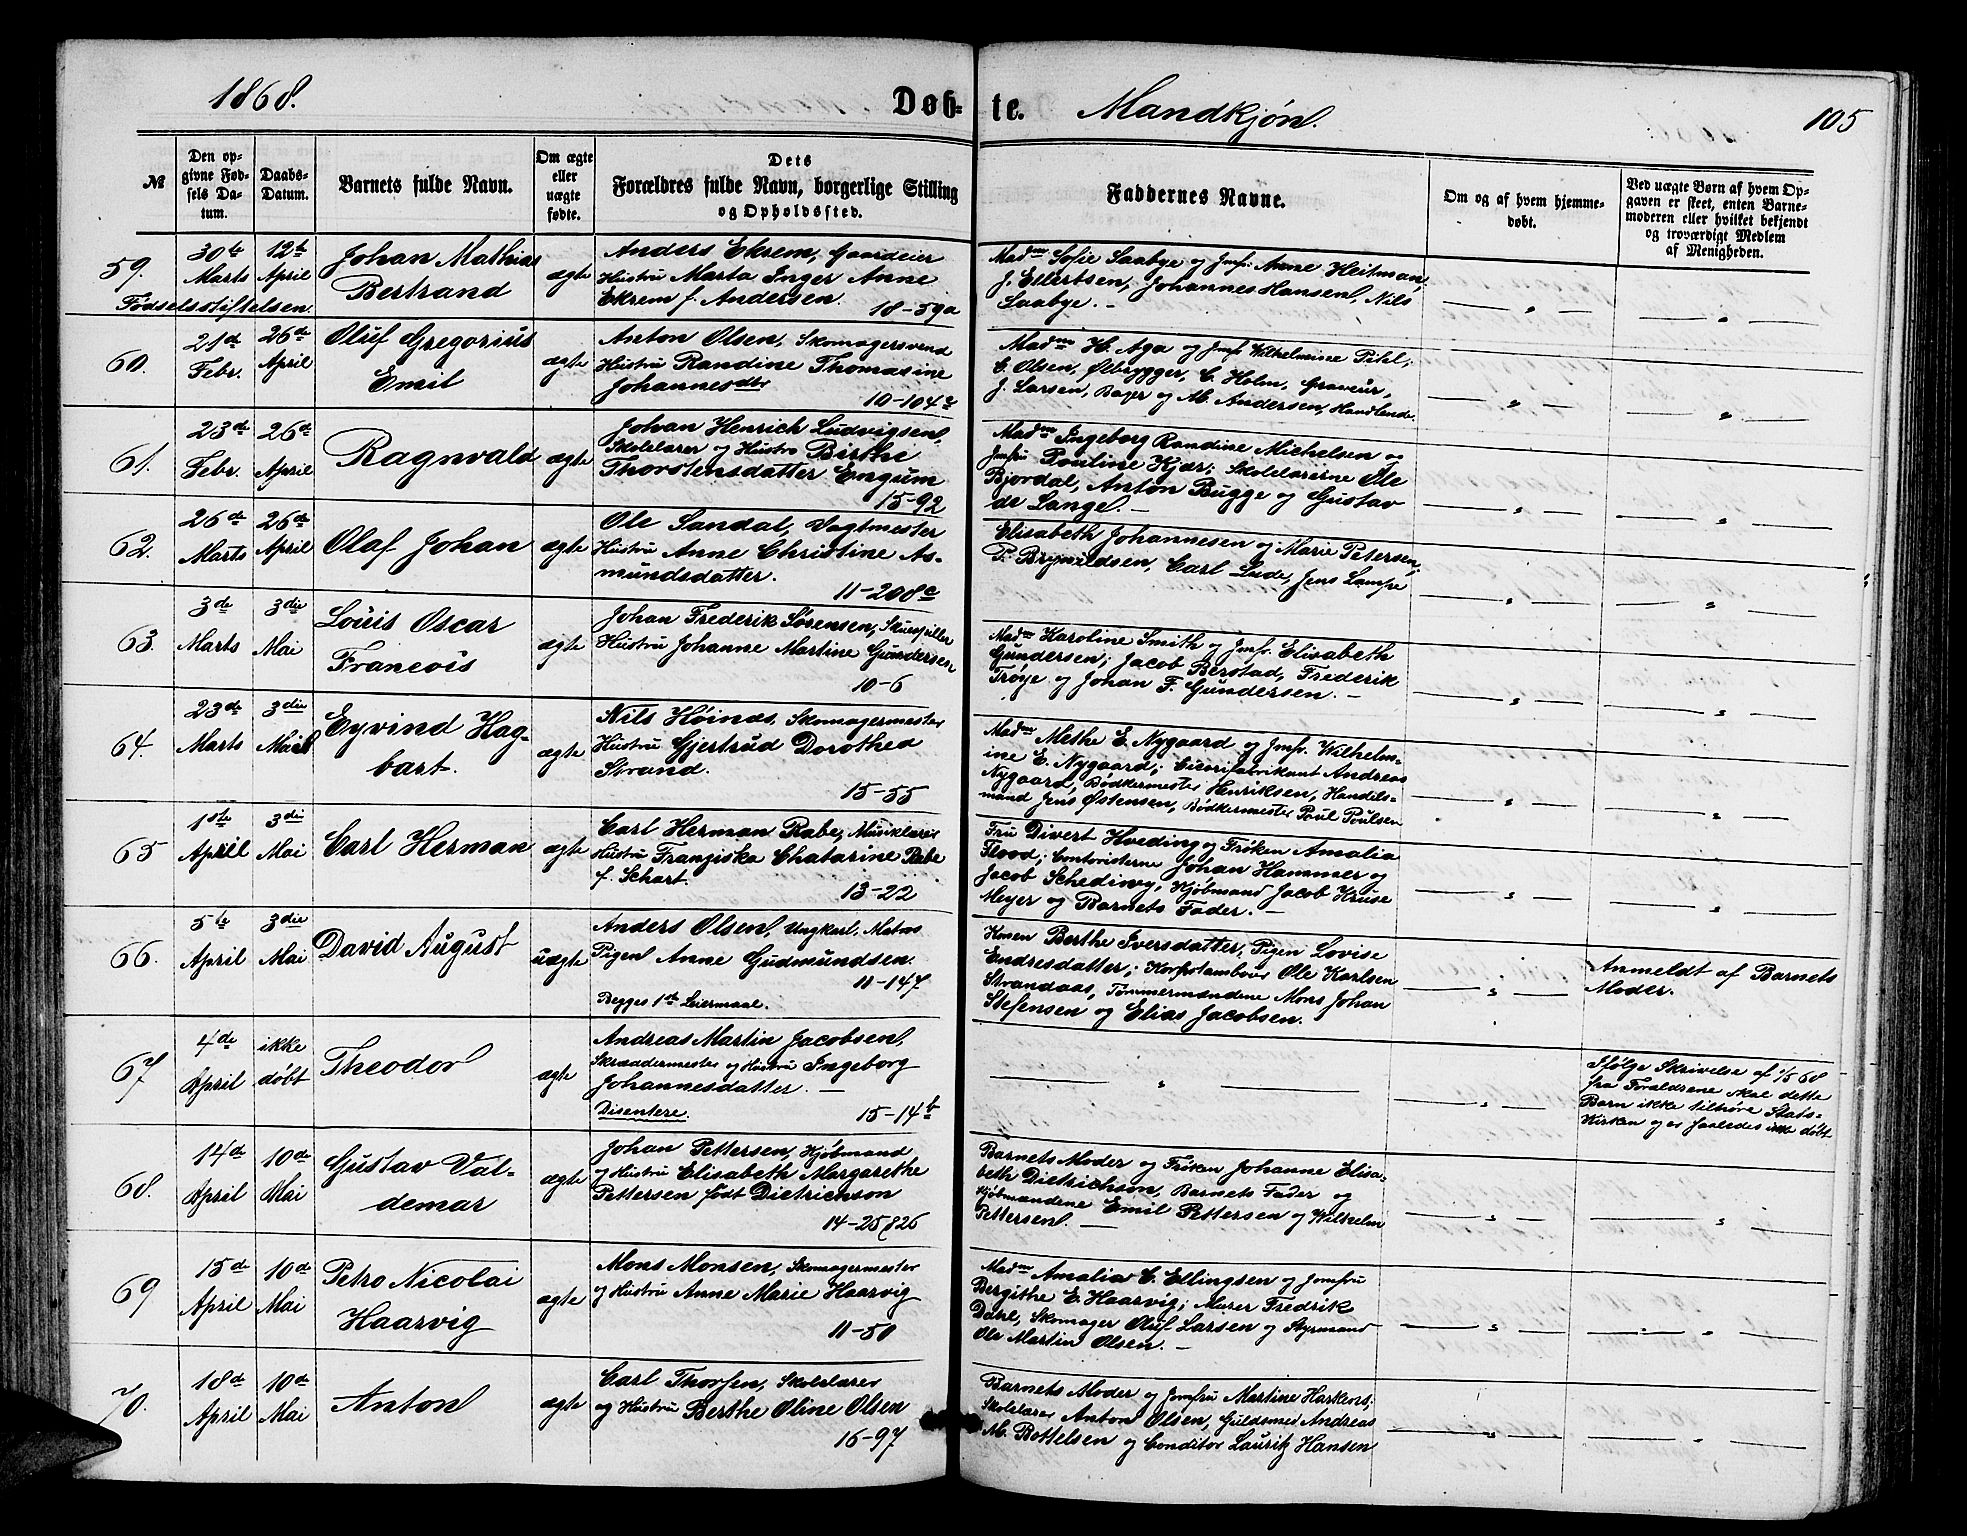 1868.
Døb-
te.
Mandkjøn.
105
№
Den op-
givne Fød-
sels Da-
tum.
Daabs-
Datum.
Barnets fulde Navn.
Om ægte
eller
uægte
fødte.
Dets
Forældres fulde Navn, borgerlige Stilling
og Opholdssted.
Faddernes Navne.
Om og af hvem hjemme-
døbt.
Ved uægte Børn af hvem Op-
gaven er skeet, enten Barne-
moderen eller hvilket bekjendt
og troværdigt Medlem
af Menigheden.
59.
30te Marts
12te April
Johan Mathias
Bertrand
Fødselsstiftelsen.
ægte
Anders Ekrem, Gaardeier
Hustru Marta Inger Anne
Ekrem f. Andersen.
18-59a
Madm Sofie Saabye og Jmfr. Anne Heitman,
J. Ellertsen, Johannes Hansen, Nils
Saabye. —
60.
21de Febr.
26de April
Oluf Gregorius
Emil
ægte
Anton Olsen, Skomagersvend
Hustru Randine Thomasine
Johannesdtr
10-104a
Madm H. Aga og Jmfr Wilhelmine Pihl;
C. Olsen, Ølbrygger, C. Holm, Graveur,
J. Larsen, Bager og M. Andersen, Handlende
61.
23de Febr.
26de April
Ragnvald
ægte
Johan Henrich Ludvigsen,
Skolelærer og Hustru Birthe
Thorstensdatter Engum
15-92
Madm Ingeborg Randine Michelsen og
Jmfru Pouline Kjær; Skolelærerne Ole
Bjordal, Anton Bugge og Gustav
de Lange. —
62.
26de Marts
26de April
Olaf Johan
ægte
Ole Sandal, Vagtmester
Hustru Anne Christine As-
mundsdatter.
11-208c
Elisabeth Johannesen og Marie Petersen;
P. Brynildsen, Carl Lude, Jens Lampe
63.
3de Marts
3die Mai
Louis Oscar
Francois
ægte
Johan Frederik Sørensen, Skuespiller
Hustru Johanne Martine Gundersen
10-6
Madm Karoline Smith og Jmfr. Elisabeth
Gundersen; Jacob Berstad, Frederik
Trøye og Johan F. Gundersen. —
64.
23de Marts
3die Mai
Eyvind Hag-
bart.
ægte
Nils Høinæs, Skomagermester
Hustru Gjertrud Dorothea
Strand.
15-55
Madm Methe E. Nygaard og Jmfr. Wilhelm-
ine E. Nygaard; Cicorifabrikant Andreas
Nygaard, Bødkermester Henriksen, Handels-
mand Jens Østensen, Bødkermester Poul Poulsen
65
1ste April
3die Mai
Carl Herman
ægte
Carl Herman Rabe, Musiklærer
Hustru Franziska Chatarine Rabe
f. Schart.
13-22
Fru Divert Hveding og Frøken Amalia
Flood; Contoristerne Johan Hammer og
Jacob Schedivy, Kjøbmand Jacob Kruse
Meyer og Barnets Fader. —
66.
5te April
3die Mai
David August
uægte
Anders Olsen, Ungkarl, Matros
Pigen Anne Gudmundsen.
11-147
Begges 1ste Leiermaal.
Konen Berthe Iversdatter, Pigen Lovise
Endresdatter; Korpstambour Ole Karlsen
Strandaas, Tømmermændene Mons Johan
Stefensen og Elias Jacobsen.
Anmeldt af Barnets
Moder.
67
4de April
ikke døbt
Theodor
ægte
Andreas Martin Jacobsen,
Skræddermester og Hustru Ingeborg
Johannesdatter. —
Disentere.
15-14b
Ifølge Skrivelse af 1/5 68
fra Forældrene skal dette
Barn ikke tilhøre Stats-
Kirken og er saaledes ikke døbt
68.
14de April
10de Mai
Gustav Val-
demar
ægte
Johan Pettersen, Kjøbmand
og Hustru Elisabeth Margarethe
Pettersen født Dietrichson
14-25/826
Barnets Moder og Frøken Johanne Elisa-
beth Dietrichson, Barnets Fader og
Kjøbmændene Emil Pettersen og Wilhelm
Pettersen. —
69
15de April
10de Mai
Petro Nicolai
Haarvig
ægte
Mons Monsen, Skomagermester
og Hustru Anne Marie Haarvig
11-50
Madm Amalia C. Ellingsen og Jomfru
Bergithe E. Haarvig; Murer Fredrik
Dahl, Skomager Oluf Larsen og Styrmand
Ole Martin Olsen. —
70.
18de April
10de Mai
Anton
ægte
Carl Thorsen, Skolelærer
og Hustru Berthe Oline Olsen
16-97
Barnets Moder og Jomfru Martine Harkens;
Skolelærer Anton Olsen, Guldsmed Andreas
M. Bottelsen og Conditor Lauritz Hansen